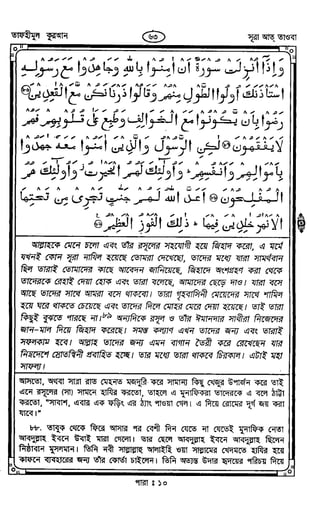 তাফহীমুল কুরআন
৬৩
সূরা আত্ তাওবা
وَإِذَا أُنْزِلَتْ سُورَةٌ أَنْ آمِنُوا بِاللَّهِ وَجَاهِدُوا مَعَ رَسُولِهِ
اسْتَأْذَنَكَ أُولُوا الطَّوْلِ مِنْهُمْ وَقَالُوا ذَرْنَا نَكُنْ مَعَ الْقَاعِدِينَ
رَضُوا بِأَنْ يَكُونُوا مَعَ الْخَوَالِفِ وَطُبِعَ عَلَىٰ قُلُوبِهِمْ فَهُمْ
لَا يَفْقَهُونَ لَٰكِنِ الرَّسُولُ وَالَّذِينَ آمَنُوا مَعَهُ جَاهَدُوا
بِأَمْوَالِهِمْ وَأَنْفُسِهِمْ وَأُولَٰئِكَ لَهُمُ الْخَيْرَاتُ وَأُولَٰئِكَ هُمُ
الْمُفْلِحُونَ أَعَدَّ اللَّهُ لَهُمْ جَنَّاتٍ تَجْرِي مِنْ تَحْتِهَا
الْأَنْهَارُ خَالِدِينَ فِيهَا ذَٰلِكَ الْفَوْزُ الْعَظِيمُ
আল্লাহকে মেনে চলো এবং তাঁর রসূলের সহযোগী হয়ে জিহাদ করো, এ মর্মে
যখনই কোন সূরা নাযিল হয়েছে তোমরা দেখেছো, তাদের মধ্যে যারা সামর্থবান
ছিল তারাই তোমাদের কাছে আবেদন জানিয়েছে, জিহাদে অংশগ্রহণ করা থেকে
তাদেরকে রেহাই দেয়া হোক এবং তারা বলেছে, আমাদের ছেড়ে দাও। যারা বসে
আছে তাদের সাথে আমরা বসে থাকবো। তারা গৃহবাসিনী মেয়েদের সাথে শামিল
হয়ে ঘরে থাকতে চেয়েছে এবং তাদের দিলে মোহর মেরে দেয়া হয়েছে। তাই তারা
কিছুই বুঝতে পারছে না। অন্যদিকে রসূল ও তাঁর ঈমানদার সাথীরা নিজেদের
জান-মাল দিয়ে জিহাদ করেছে। সমস্ত কল্যাণ এখন তাদের জন্য এবং তারাই
সফলকাম হবে। আল্লাহ তাদের জন্য এমন বাগান তৈরী করে রেখেছেন যার
নিম্নদেশে স্রোতস্বিনী প্রবাহিত হচ্ছে। তার মধ্যে তারা থাকবে চিরকাল। এটাই মহা
সাফল্য।
আসতো, অথবা সারা রাত মেহনত মজদুরি করে সামান্য কিছু খেজুর উপার্জন করে তাই
এনে রসূলের (সা) সামনে হাযির করতো, তাহলে এ মুনাফিকরা তাদেরকে এ বলে ঠাট্টা
করতো, "সাবাশ, এবার এক ফড়িং এর ঠ্যাং পাওয়া গেল। এ দিয়ে রোমের দুর্গ জয় করা
যাবে।"
৮৮. তাবুক থেকে ফিরে আসার পর বেশী দিন যেতে না যেতেই মুনাফিক নেতা
আবদুল্লাহ ইবনে উবাই মারা গেলো। তার ছেলে আবদুল্লাহ ইবনে আবদুল্লাহ ছিলেন
নিষ্ঠাবান মুসলমান। তিনি নবী সাল্লাল্লাহু আলাইহি ওয়া সাল্লামের খেদমতে হাযির হয়ে
কাফনে ব্যবহারের জন্য তাঁর কোর্তা চাইলেন। তিনি অত্যন্ত উদার হৃদয়ের পরিচয় দিয়ে
পারা : ১০